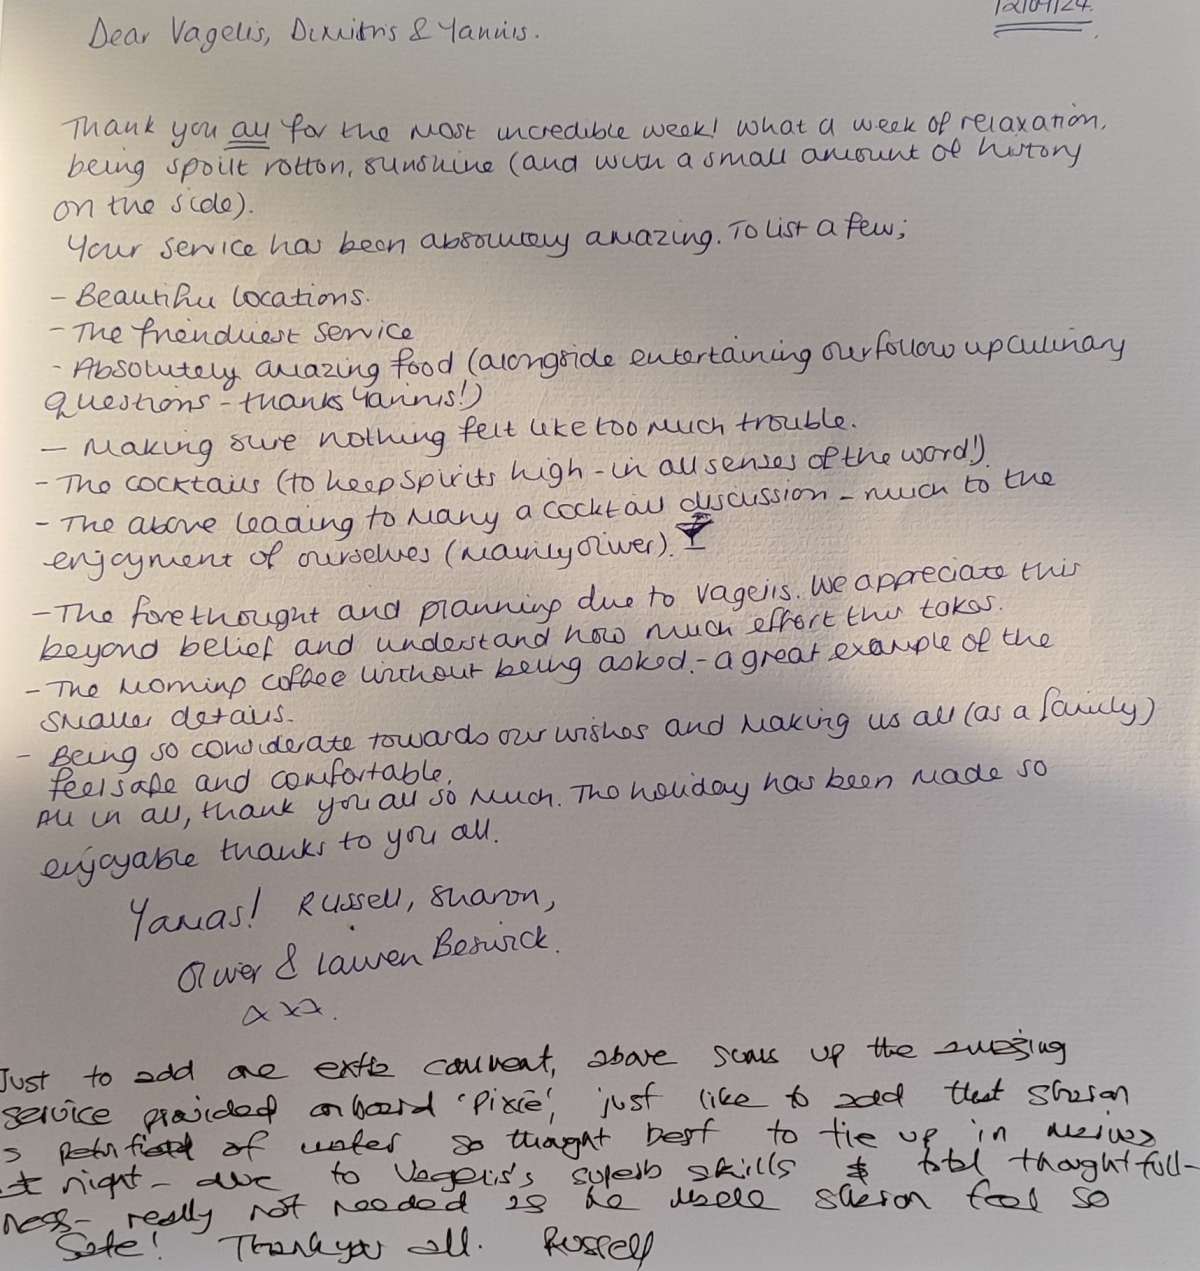 12/09/24.
Dear Vagelis, Dimitris & Yannis.
Thank you all for the most incredible week! What a week of relaxation,
being spoilt rotton, sunshine (and with a small amount of history
on the side).
Your service has been absolutely amazing. To list a few;
- Beautiful locations.
- The friendliest service
- Absolutely amazing food (alongside entertaining our follow up culinary
questions - thanks Yannis!)
- Making sure nothing felt like too much trouble.
- The cocktails (to keep spirits high - in all senses of the word!)
- The above leading to many a cocktail discussion - much to the
enjoyment of ourselves (mainly Oliver).
- The forethought and planning due to Vagelis. We appreciate this
beyond belief and understand how much effort this takes.
- The morning coffee without being asked. - a great example of the
smaller details.
- Being so considerate towards our wishes and making us all (as a family)
feel safe and comfortable.
All in all, thank you all so much. The holiday has been made so
enjoyable thanks to you all.
Yamas! Russell, Sharon,
Oliver & Lauren Beswick.
xxx.
Just to add one extra comment, above sums up the amazing
service provided onboard 'Pixie', just like to add that Sharon
is petrified of water so thought best to tie up in
at night - due to Vagelis's superb skills & total thoughtfull-
ness - really not needed as he made Sharon feel so
Safe! Thankyou all. Russell